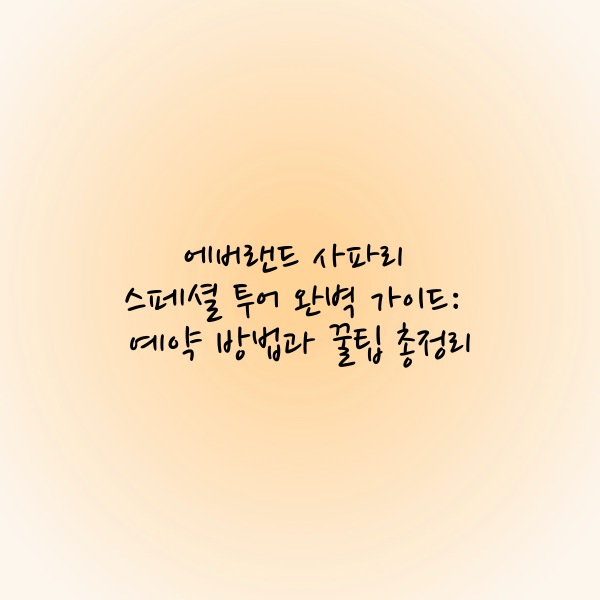 에버랜드 사파리
스페셜 투어 완벽 가이드:
예약 방법과 꿀팁 총정리